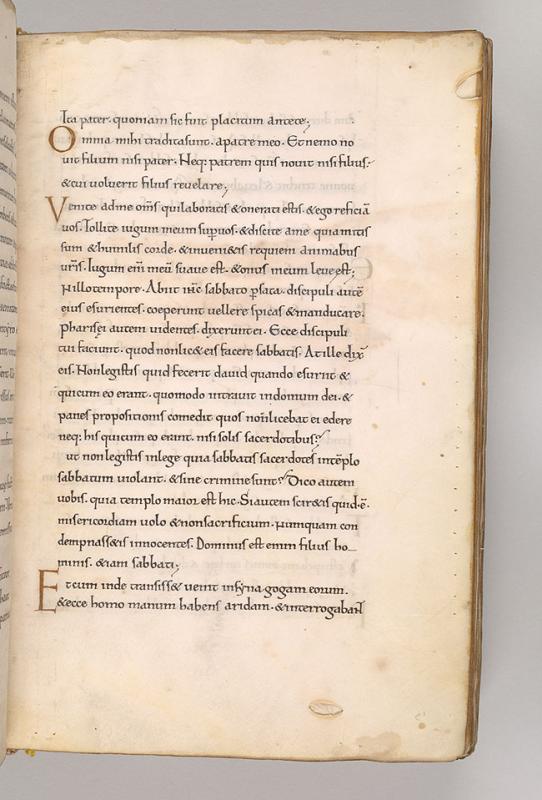 Ita pater· quoniam sic fuit placitum ante te;
Omnia mihi tradita sunt· a patre meo· Et nemo no
uit filium nisi pater· Neq: patrem quis nouit nisi filius·
& cui voluerit filius reuelare;
Venite ad me om̅s qui laboratis & onerati estis· & ego reficiā
uos· Tollite iugum meum sup uos· & discite a me quia mitis
sum & humilis corde· & inueni&is requiem animabus
ur̅is· Iugum em̅ meū suaue est· & onus meum leue est;
N illo tempore· Abiit ih̅c sabbato p sata· discipuli autē
eius esurientes· coeperunt uellere spicas & manducare·
Pharisęi autem uidentes· dixerunt ei· Ecce discipuli
tui faciunt· quod non lic& eis facere sabbatis· At ille dix̅
eis· Non legistis quid fecerit dauid quando esuriit &
qui cum eo erant· quomodo intrauit in domum dei· &
panes propositionis comedit quos non licebat ei edere
neq: his qui cum eo erant· nisi solis sacerdotibus?
ut non legistis in lege quia sabbatis sacerdotes in tēplo
sabbatum uiolant· & sine crimine sunt? Dico autem
uobis· quia templo maior est hic· Si autem scir&is quid·ē·
misericordiam uolo & non sacrificium· Numquam con
dempnass&is innocentes· Dominus est enim filius ho
minis· & iam sabbati;
Et cum inde transiss& uenit in synagogam eorum·
& ecce homo manum habens aridam· & interrogaban̅t